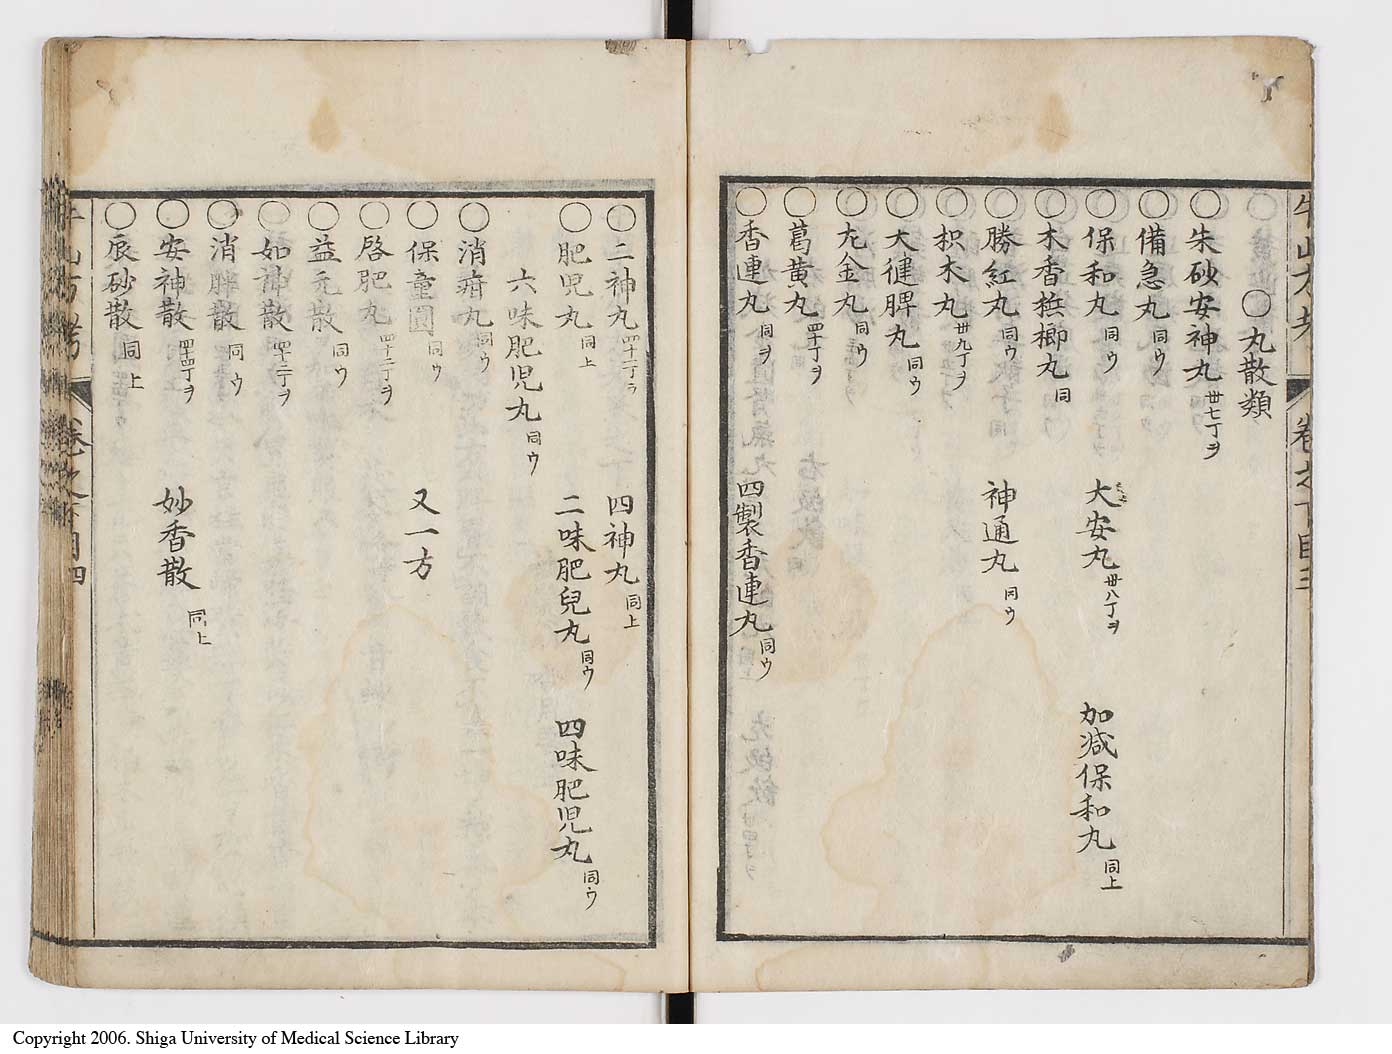 〇丸散類
〇朱砂安神丸 丗七丁ヲ
〇備急丸 同ウ
〇保和丸 同ウ 大安丸 丗八丁ヲ 加减保和丸 同上
〇木香梹榔丸 同
〇勝紅丸 同ウ 神通丸 同ウ
〇枳木丸 丗九丁ヲ
〇大健脾丸 同ウ
〇九金丸 同ウ
〇葛黄丸 四十丁ヲ
〇香連丸 同ヲ 四製香連丸 同ウ
牛山方考 卷之下目三
〇二神丸 四十一丁ヲ 四神丸 同上
〇肥児丸 同上 二味肥兒丸 同ウ 四味肥児丸 同ウ
六味肥児丸 同ウ
〇消疳丸 同ウ
〇保童圓 同ウ 又一方
〇啓肥丸 四十二丁ヲ
〇益元散 同ウ
〇如神散 四十三丁ヲ
〇消胖散 同ウ
〇安神散 四十四丁ヲ 妙香散 同上
〇辰砂散 同上
牛山方考 卷之下目四
Copyright 2006. Shiga University of Medical Science Library